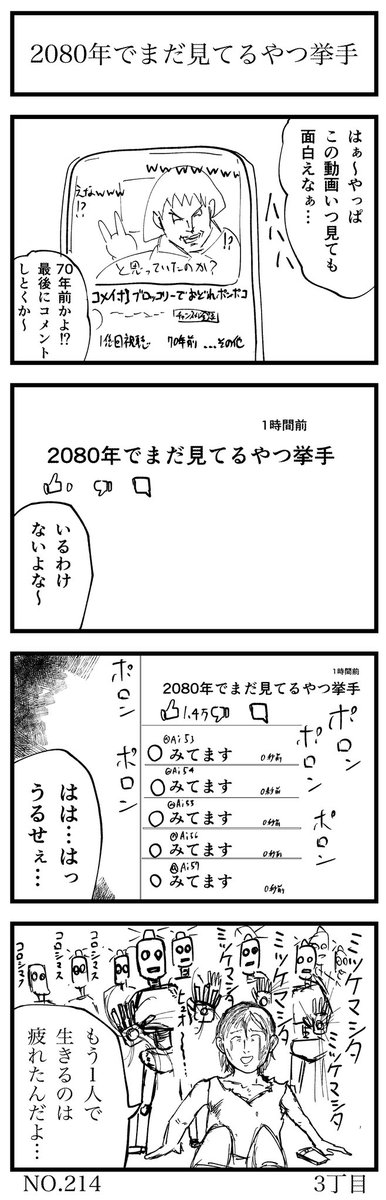 2080年でまだ見てるやつ挙手
はぁ〜やっぱ
この動画いつ見ても
面白えなぁ…
ハハハ
wwwwww
!?
!?
と思っていたのか?
ブロッコリーでおどれポンポコ
チャンネル登録
1億回視聴 70年前 …その他
70年前かよ!?
最後にコメント
しとくか〜
1時間前
2080年でまだ見てるやつ挙手
0
いるわけ
ないよな〜
1時間前
2080年でまだ見てるやつ挙手
1.4万
@Ai53
みてます 0秒前
@Ai54
みてます 0秒前
@Ai55
みてます 0秒前
@Ai56
みてます 0秒前
@Ai57
みてます 0秒前
ポロン
ポロン
ポロン
ポロン
ポロン
はは…はっ
うるせぇ…
ミツケマシタ
ミツケマシタ
ミツケマシタ
ミツケマシタ
コロシマス
コロシマス
コロシマス
もう1人で
生きるのは
疲れたんだよ…
NO.214
3丁目